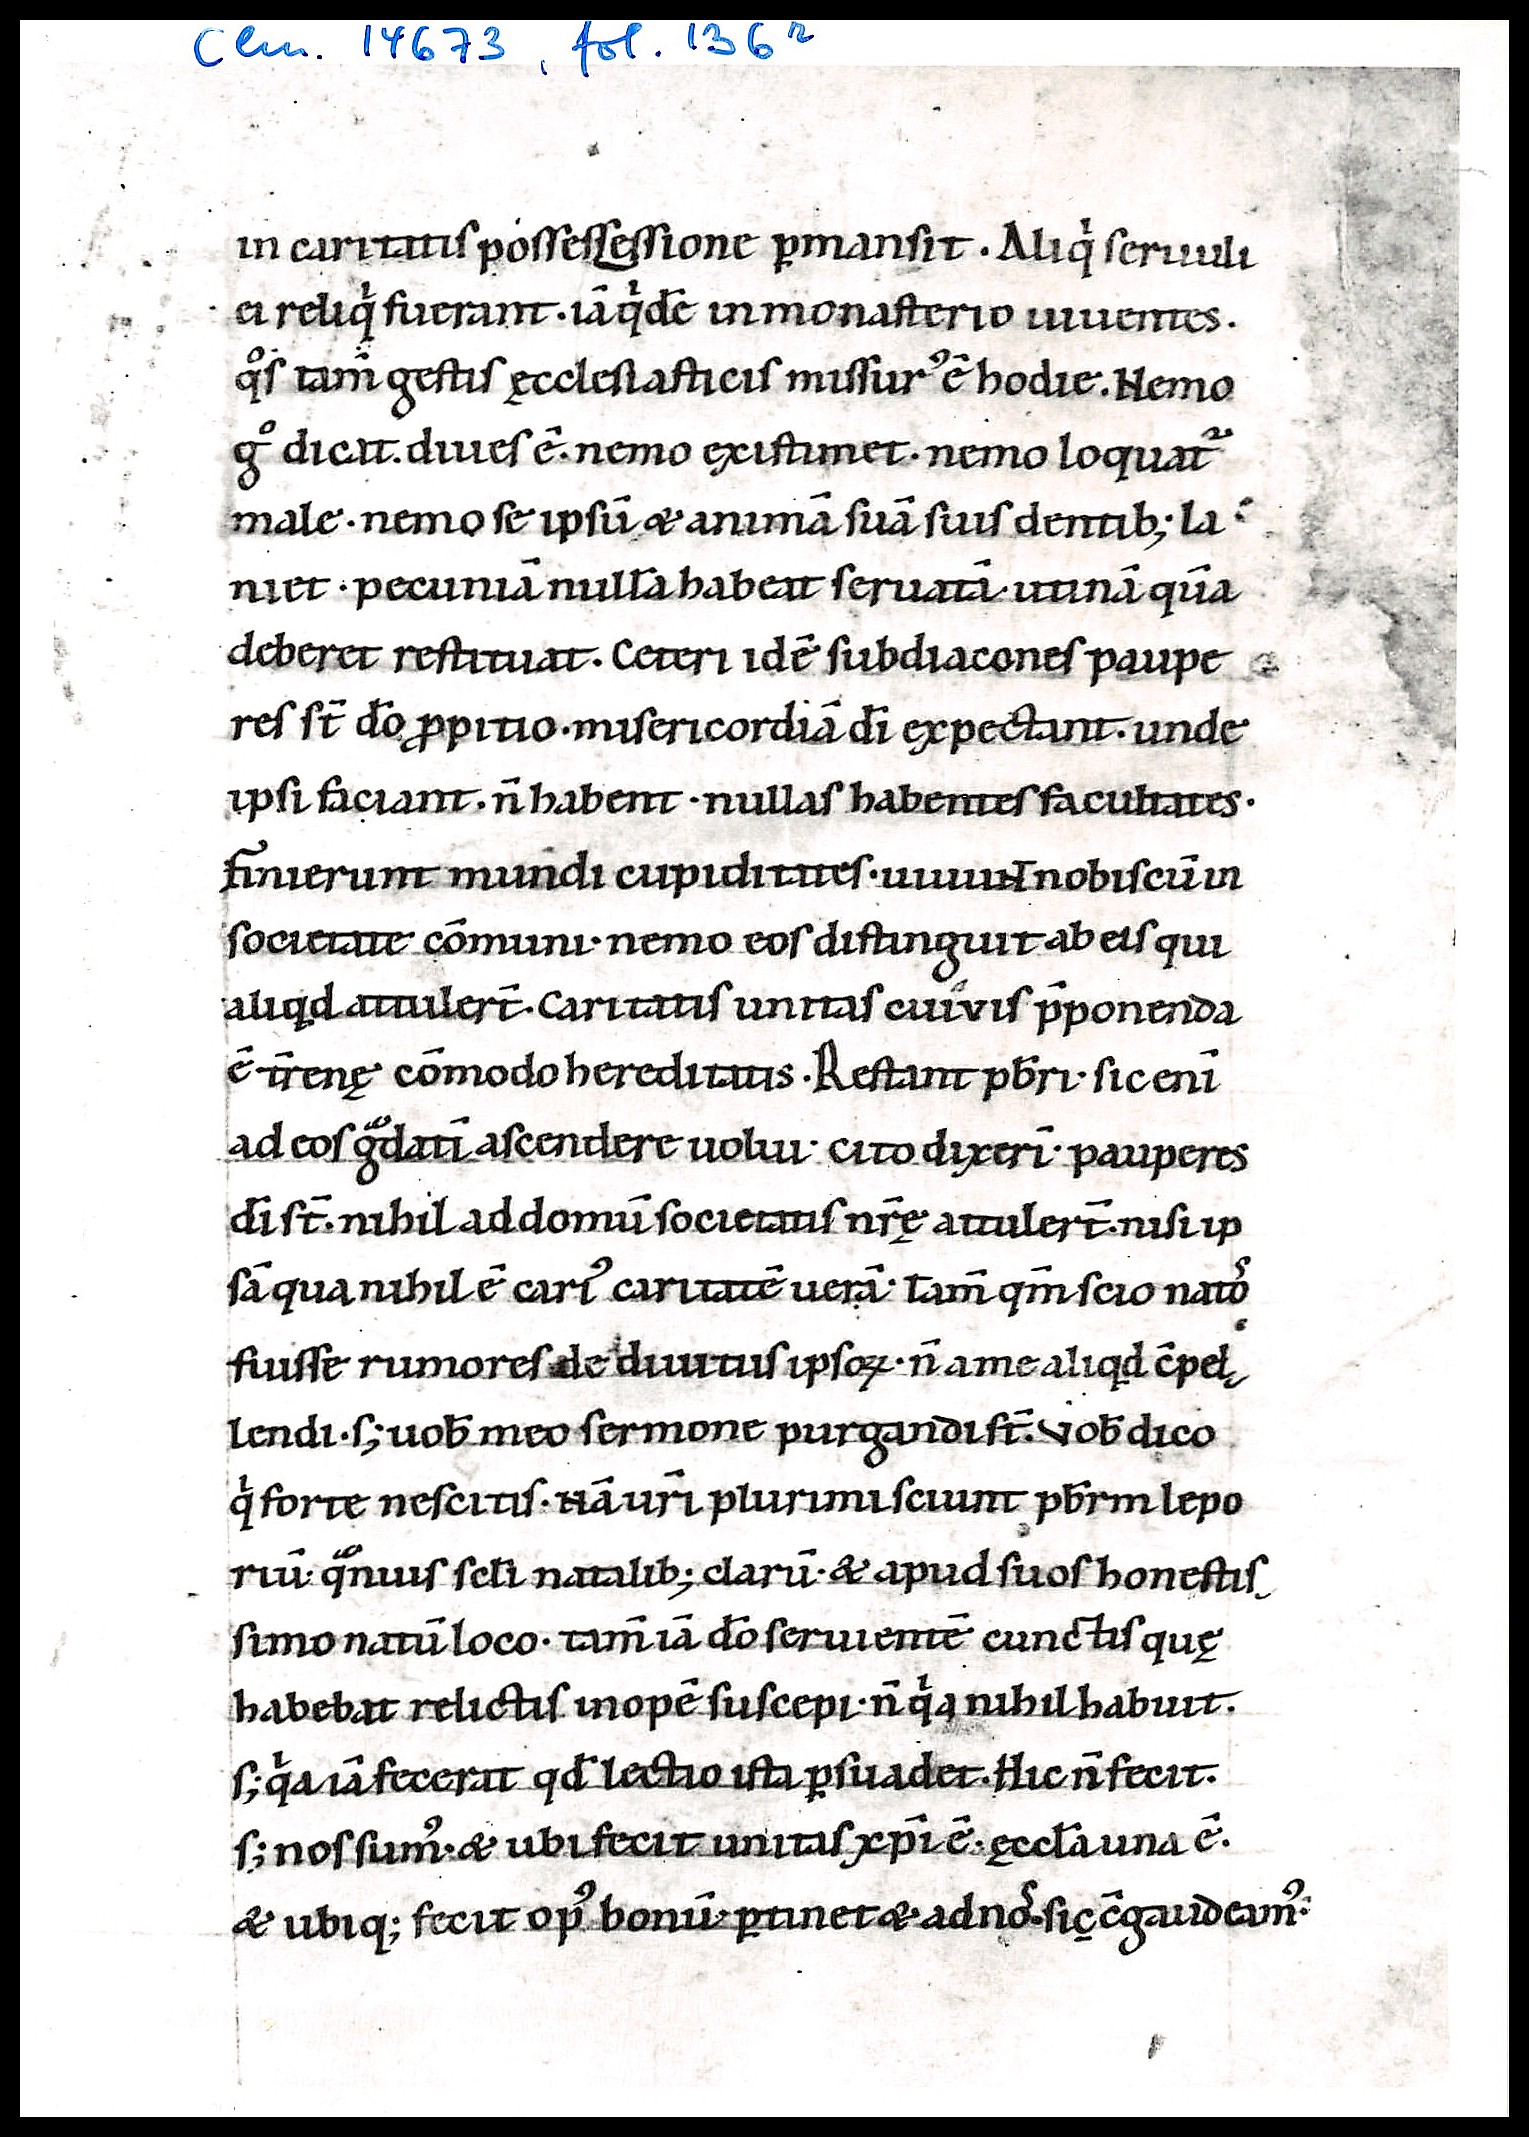 Clm. 14673, fol. 136r
in caritatis possessessione ꝑmansit. Aliqͥ seruuli
ei reliqͥ fuerant. iā qͥdē in monasterio uiuentes.
qͦs tam̄ gestis ęcclesiasticis missurꝰ ē hodie. Nemo
gͦ dicat. diues ē. nemo existimet. nemo loquat᷑
male. nemo se ipsū & animā suā suis dentib; la
niet. pecuniā nullā habeat seruatā. utinā quā
deberet restituat. Ceteri idē subdiacones paupe
res st̄ do̅ ꝓpitio. misericordiā di̅ expectant. unde
ipsi faciant. n̄ habent. nullas habentes facultates.
finierunt mundi cupiditates. uiuunt nobiscū in
societate cōmuni. nemo eos distinguit ab eis qui
aliqd attulert̄. Caritatis unitas cuivis p̄ponenda
ē tr̄enę cōmodo hereditatis. Restant pb̄ri. sic eni̅
ad eos gͣdati̅ ascendere uolui. cito dixeri̅. pauperes
di̅ st̄. nihil ad domū societatis nr̄ę attulert̄. nisi ip
sā qua nihil ē cariꝰ caritatē uerā. Tam̄ qm̄ scio natoꝰ
fuisse rumores de diuitiis ipsoꝝ. n̄ a me aliqd c̄pel
lendi. s; uob̄ meo sermone purgandi st̄. Vob̄ dico
qͥ forte nescitis. Nā ur̄i plurimi sciunt pb̄rm lepo
riū. qͣnuis sc̄li natalib; clarū. & apud suos honestis
simo natū loco. tam̄ iā do̅ seruientē cunctis quę
habebat relictis inopē suscepi. n̄ qͥa nihil habuit.
s; qͥa iā fecerat qd̄ lectio ista ꝑsuadet. Hic n̄ fecit.
s; nos sumꝰ. & ubi fecit unitas xp̄i ē. ęccl̄a una ē.
& ubiq; fecit opꝰ bonū. ꝑtinet & ad noꝰ. si c̄gaudeamꝰ.